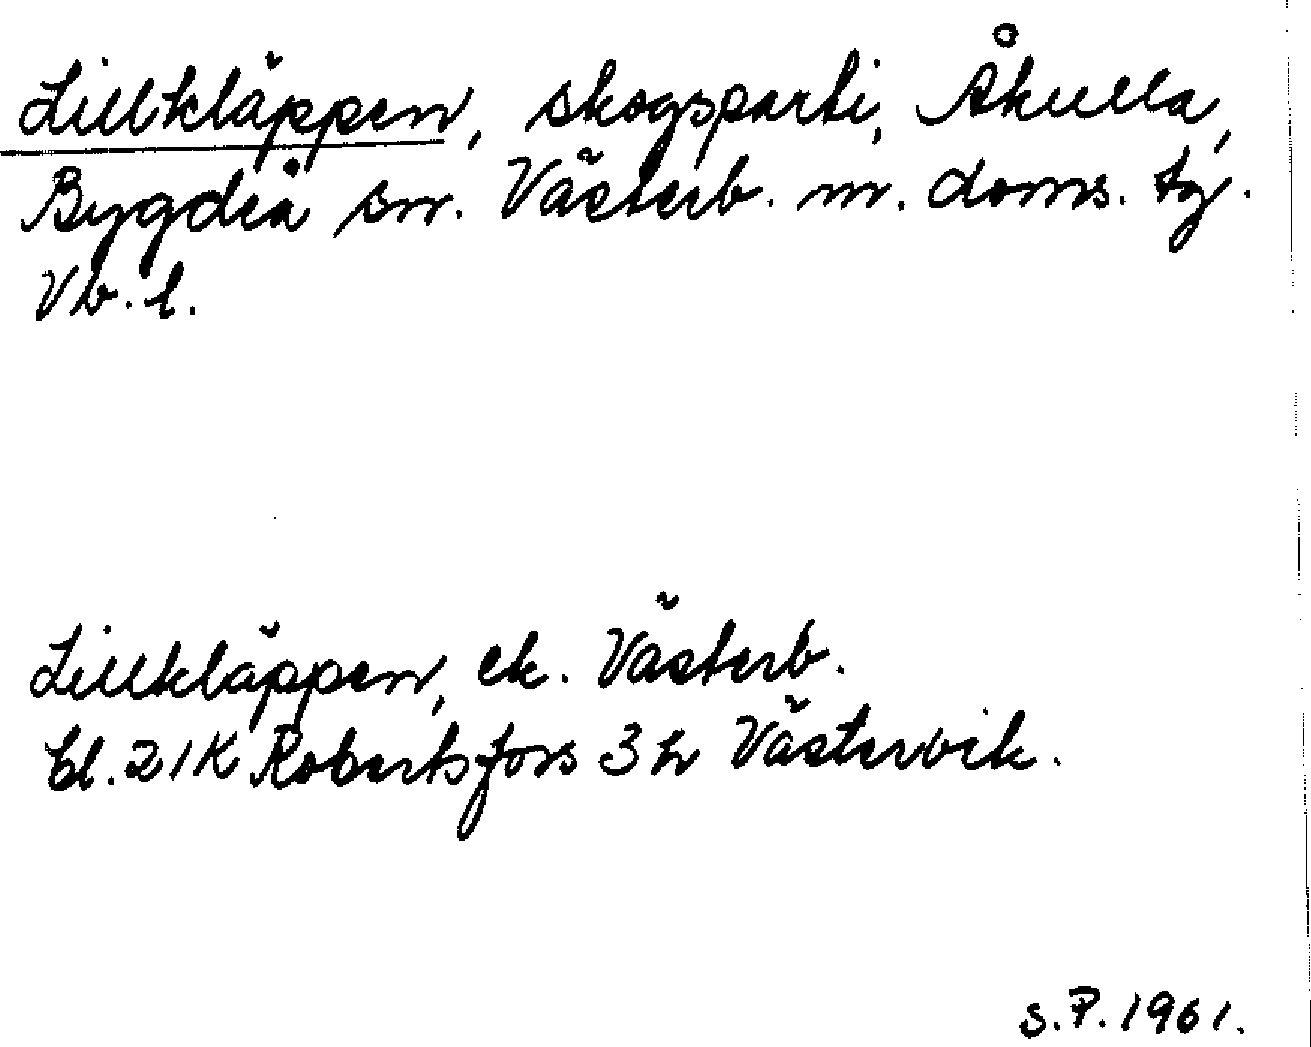 Lillkläppen, skogsparti, Åkulla,
Bygdeå sn. Västerb. m. doms. tg.
Vb. l.
Lillkläppen, ek. Västerb.
bl. 21K Robertsfors 3 h Västervik.
S.P. 1961.